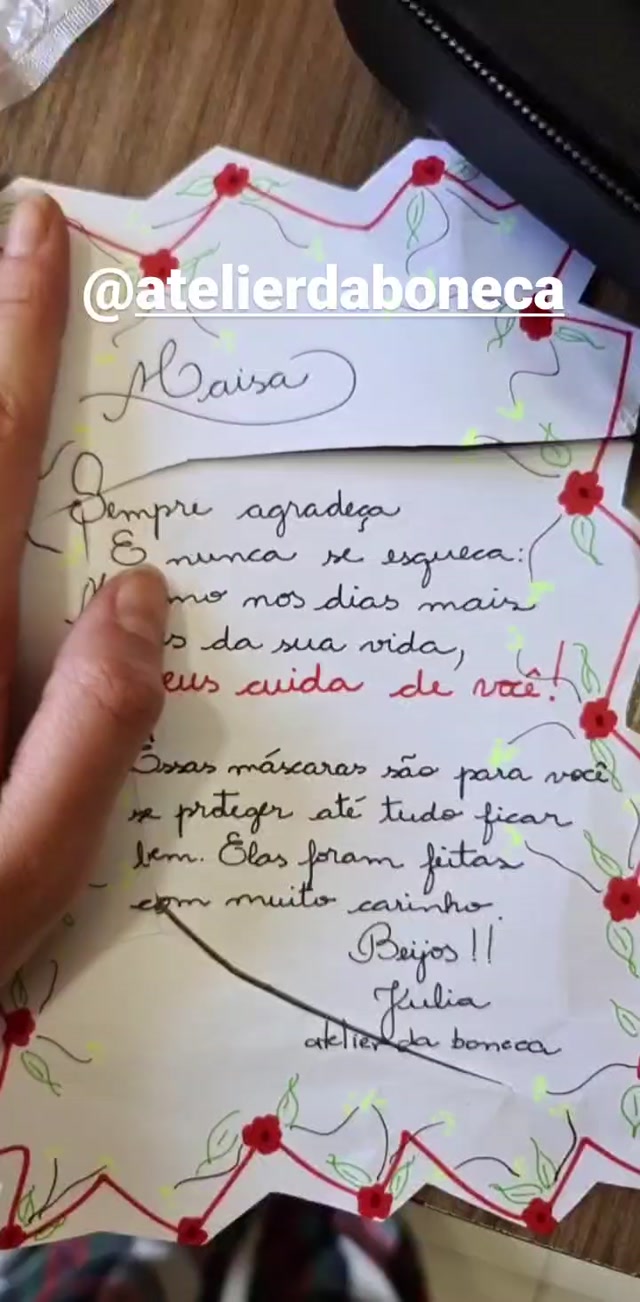 @atelierdaboneca
Maisa
Sempre agradeça
E nunca se esqueca:
mo nos dias mais
s da sua vida,
eus cuida de você!
Essas máscaras são para você
se proteger até tudo ficar
bem. Elas foram feitas
com muito carinho.
Beijos!!
Julia
atelier da boneca